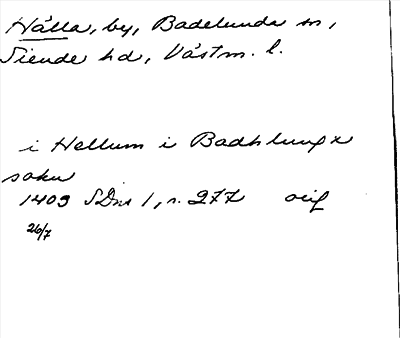 Hälla, by, Badelunda sn,
Siende hd, Västm. l.
i Hellum i Badhlungx
sokn
1409 SDns 1, s. 277 orig
26/7